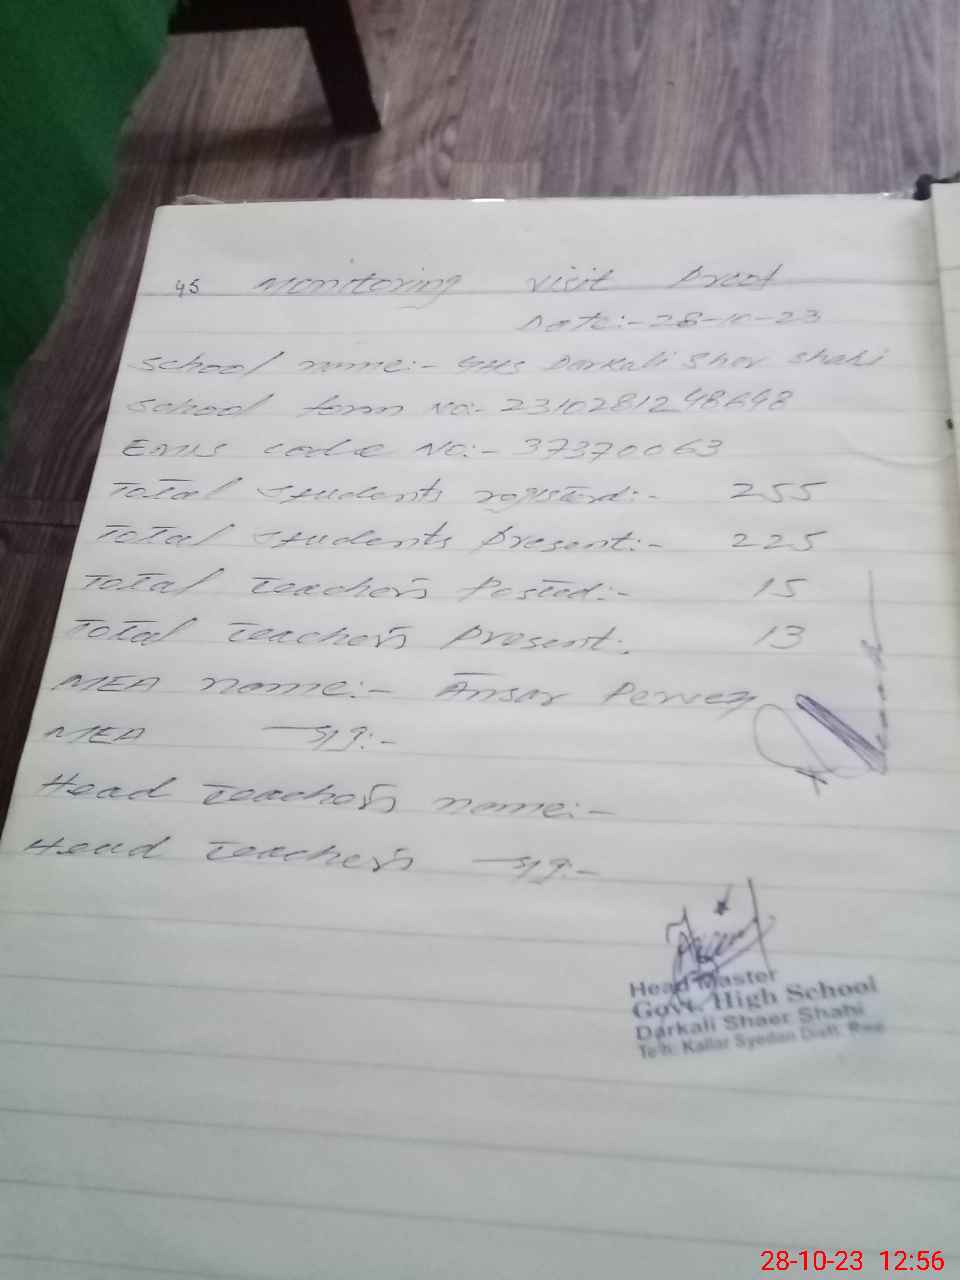 45 Monitoring visit Proof
Date:- 28-10-23
School name:- GHS Darkali Sher Shahi
School form No:- 2310281248648
EMIS code No:- 37370063
Total Students registerd:- 255
Total Students Present:- 225
Total Teachers Posted:- 15
Total Teachers Present:. 13
MEA name:- Ansar Pervez
MEA sig:-
Head Teachers name:-
Head Teachers sig:-
Head Master
Govt. High School
Darkali Shaer Shahi
Teh: Kallar Syedan Distt. Rwp
28-10-23 12:56